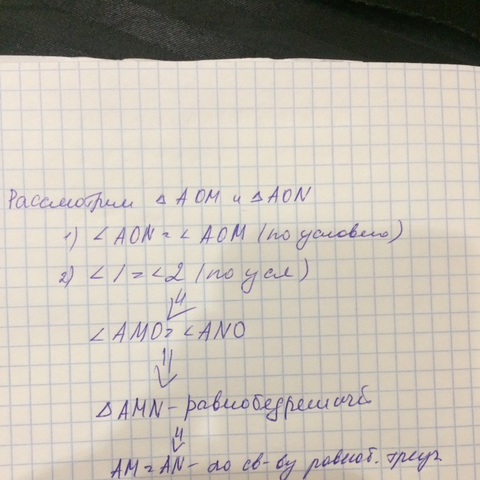 Рассмотрим △ AOM и △ AON
1) ∠AON = ∠AOM (по условию)
2) ∠1 = ∠2 (по усл)
⇓
∠AMO = ∠ANO
⇓
△AMN - равнобедренный
⇓
AM = AN - по св-ву равноб. треуг.